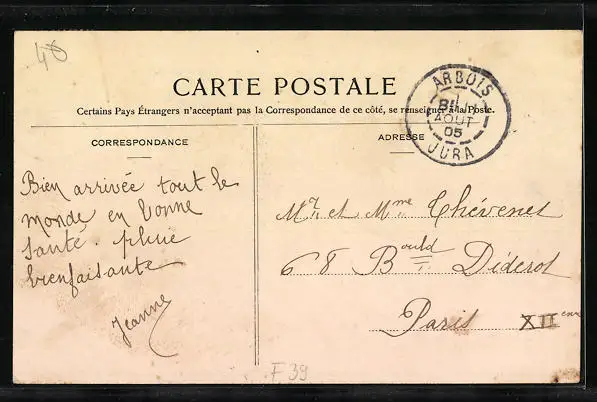 40
CARTE POSTALE
Certains Pays Étrangers n'acceptant pas la Correspondance de ce côté, se renseigner à la Poste.
ARBOIS
AOUT
05
JURA
CORRESPONDANCE
ADRESSE
Bien arrivée tout le
monde en bonne
santé. pluie
bienfaisante
Jeanne
Mr et Mme Thévenet
68 Bould Diderot
Paris XIIeme
F.39